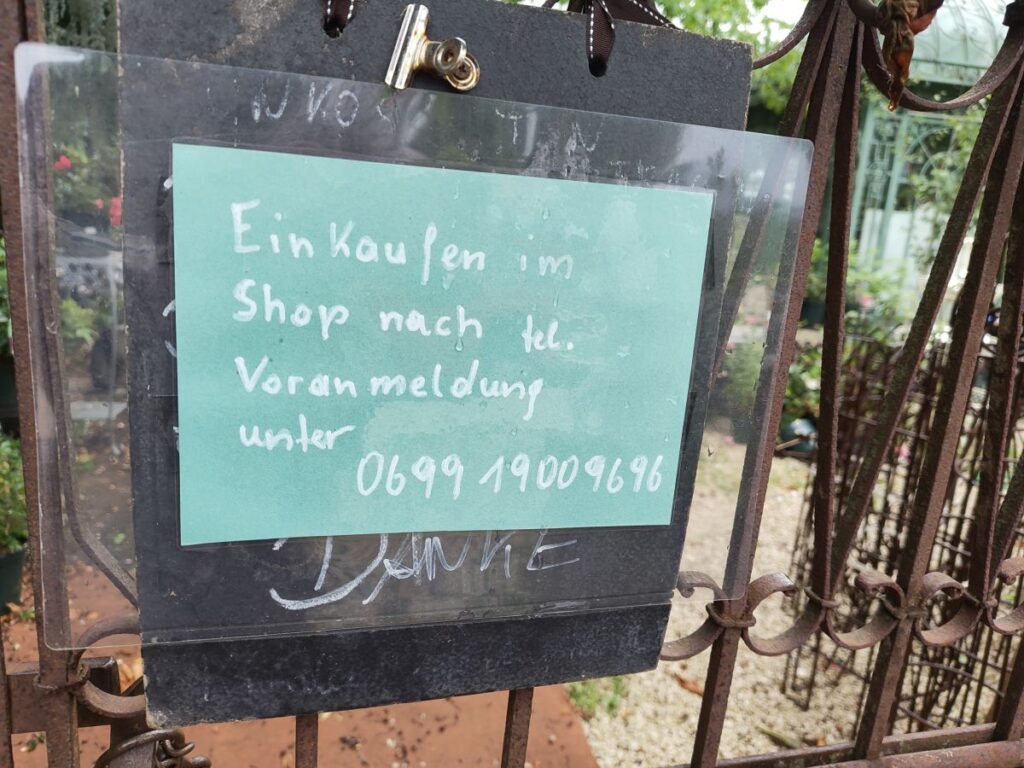 Einkaufen im
Shop nach tel.
Voranmeldung
unter
0699 19009696
DANKE